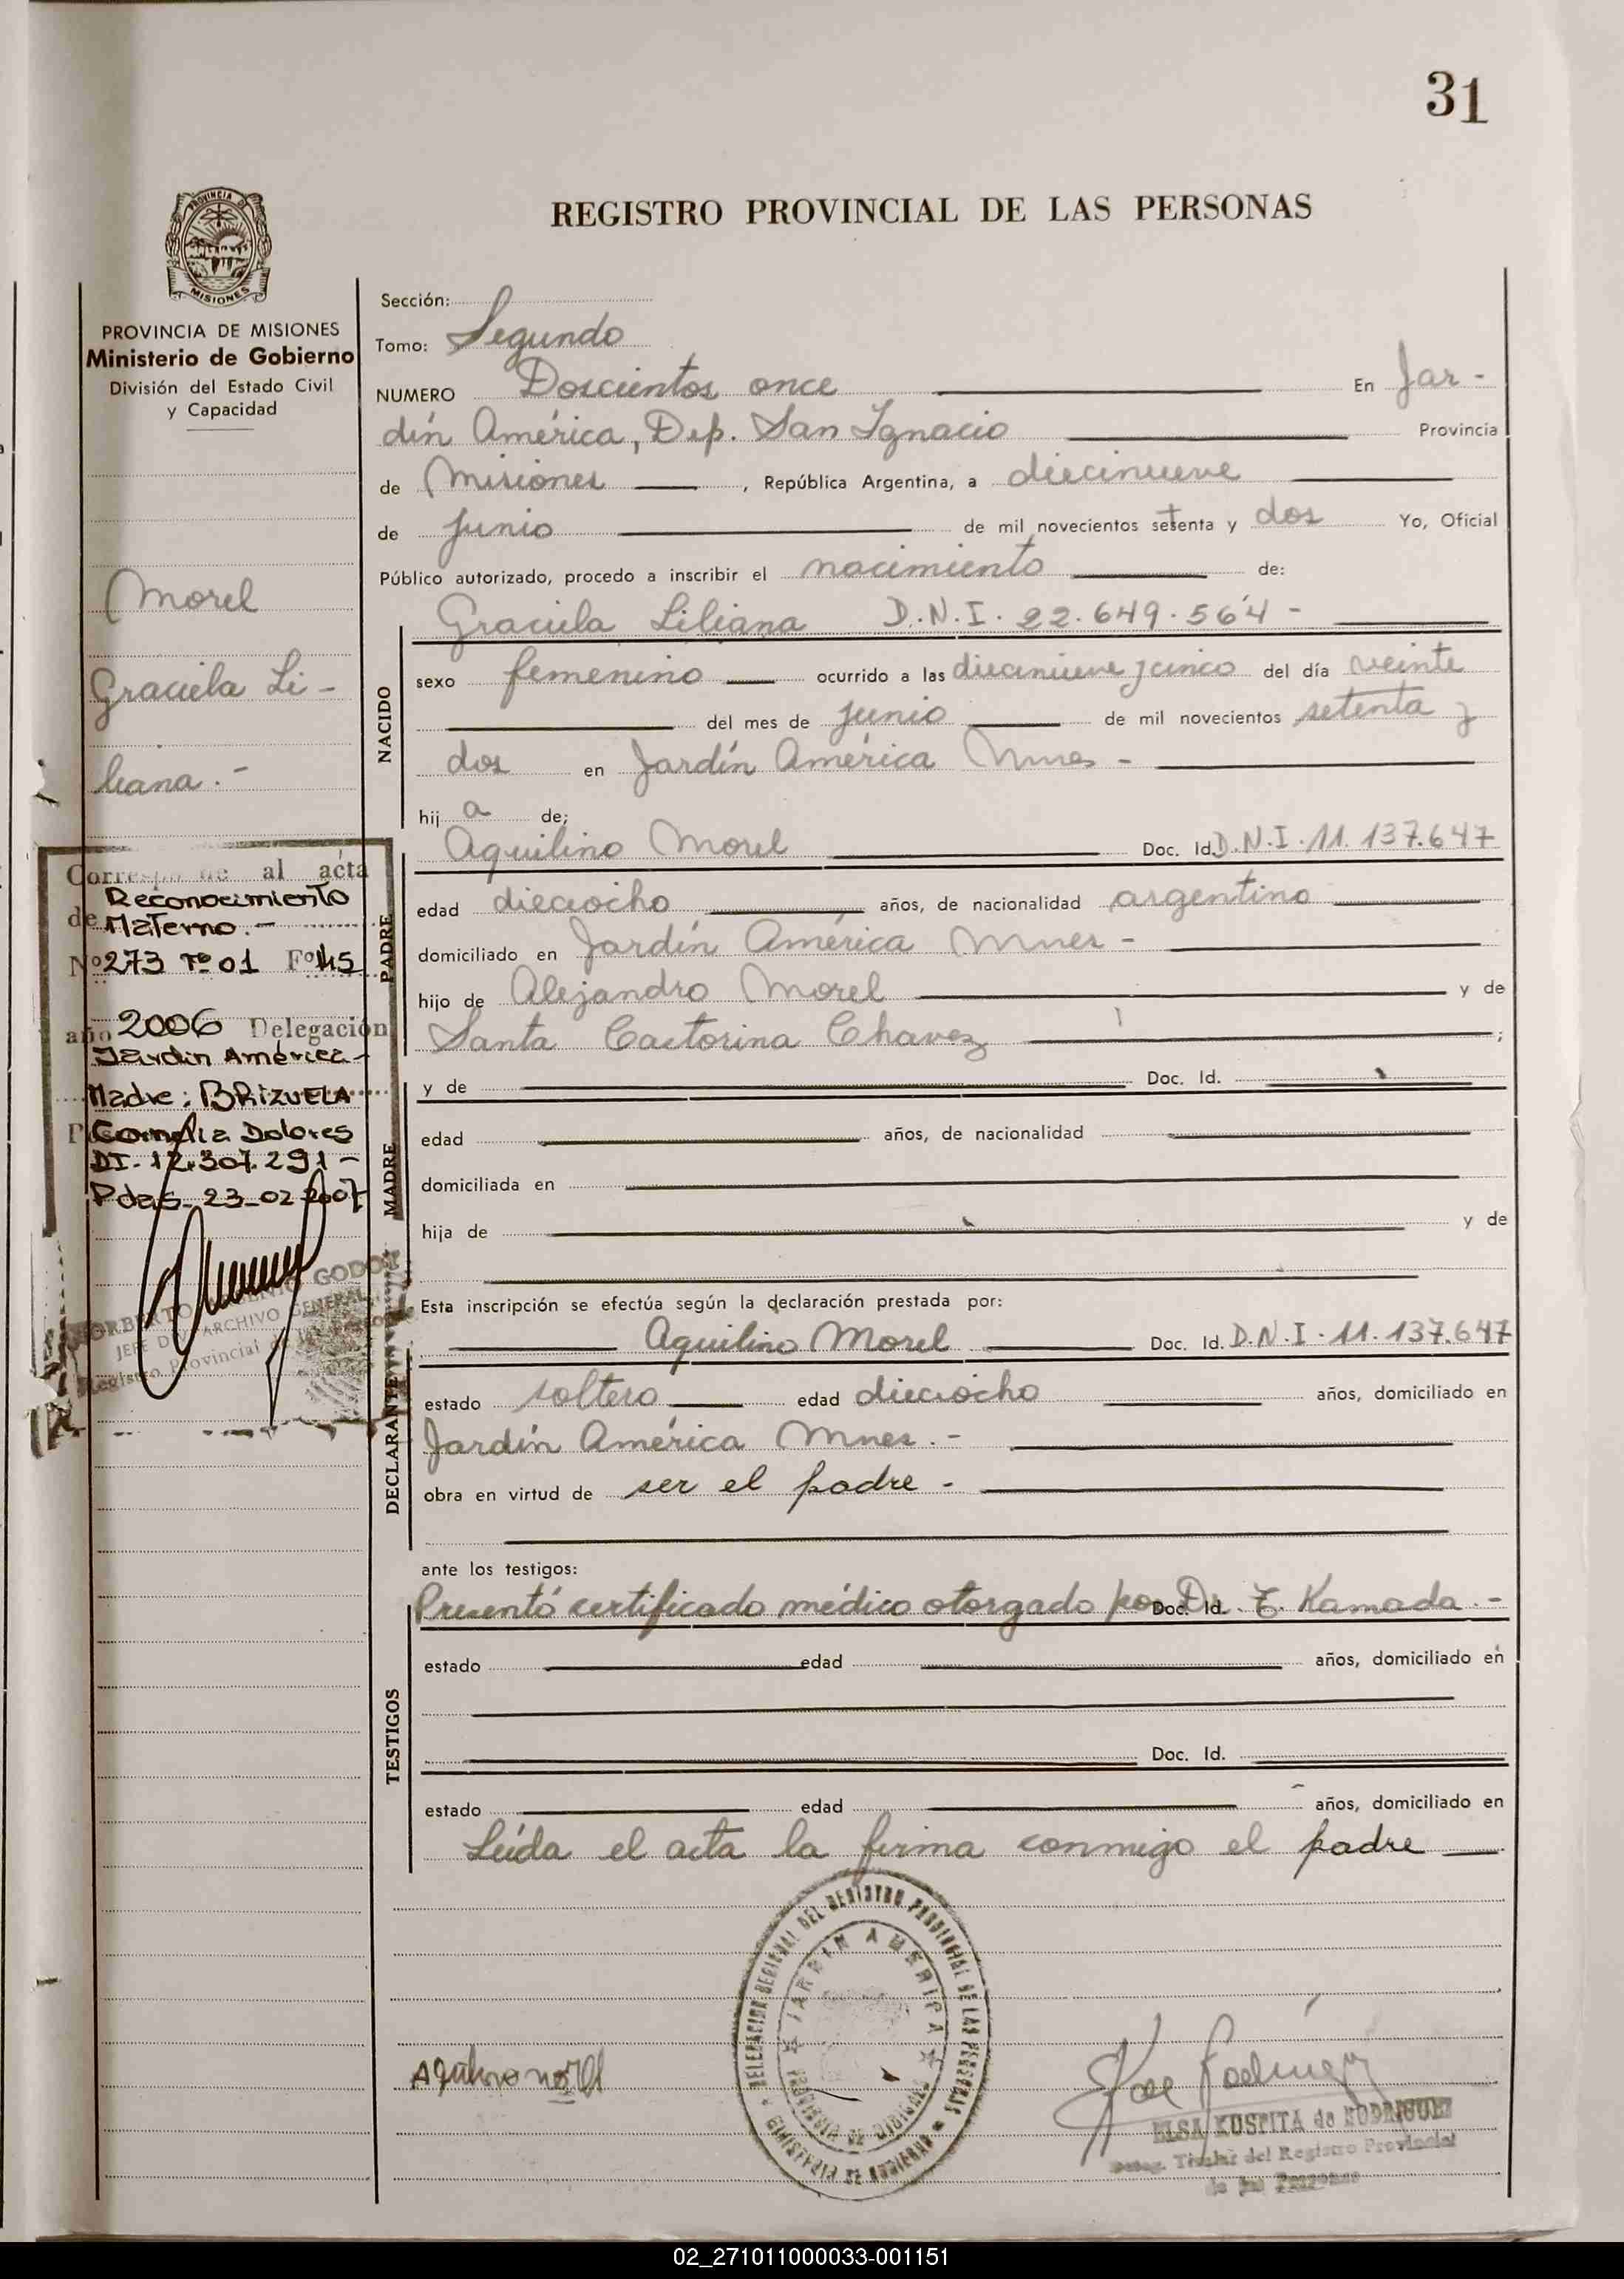 31
REGISTRO PROVINCIAL DE LAS PERSONAS
PROVINCIA DE
MISIONES
PROVINCIA DE MISIONES
Ministerio de Gobierno
División del Estado Civil
y Capacidad
Morel
Graciela Li-
liana.-
Corresponde al acta
de Reconocimiento
Materno.-
Nº 273 Tº 01 Fº 45
año 2006 Delegación
Jardín América-
Madre: BRIZUELA
Cornelia Dolores
DI. 12.307.291-
Pdas. 23-02-2007
NORBERTO GODOY
JEFE DIV. ARCHIVO GENERAL
Registro Provincial de las Personas
Sección:
Tomo: Segundo
NUMERO Doscientos once En Jar-
dín América, Dep. San Ignacio Provincia
de Misiones, República Argentina, a diecinueve
de junio de mil novecientos setenta y dos Yo, Oficial
Público autorizado, procedo a inscribir el nacimiento de:
Graciela Liliana D.N.I. 22.649.564-
NACIDO
sexo femenino ocurrido a las diecinueve y cinco del día veinte
del mes de junio de mil novecientos setenta y
dos en Jardín América Mnes-
hij a de;
PADRE
Aquilino Morel Doc. Id. D.N.I. 11.137.647
edad dieciocho años, de nacionalidad argentino
domiciliado en Jardín América Mnes-
hijo de Alejandro Morel y de
Santa Castorina Chavez ;
MADRE
y de Doc. Id.
edad años, de nacionalidad
domiciliada en
hija de y de
Esta inscripción se efectúa según la declaración prestada por:
DECLARANTE
Aquilino Morel Doc. Id. D.N.I. 11.137.647
estado soltero edad dieciocho años, domiciliado en
Jardín América Mnes.-
obra en virtud de ser el padre-
ante los testigos:
TESTIGOS
Presentó certificado médico otorgado por Doc. Id. Dr. T. Kamada.-
estado edad años, domiciliado en
Doc. Id.
estado edad años, domiciliado en
Leída el acta la firma conmigo el padre
DELEGACION REGIONAL DEL REGISTRO PROVINCIAL DE LAS PERSONAS
JARDIN AMERICA
PROVINCIA DE MISIONES
Aquilino Morel
ELSA KUSPITA de RODRIGUEZ
Deleg. Titular del Registro Provincial
de las Personas
02_271011000033-001151